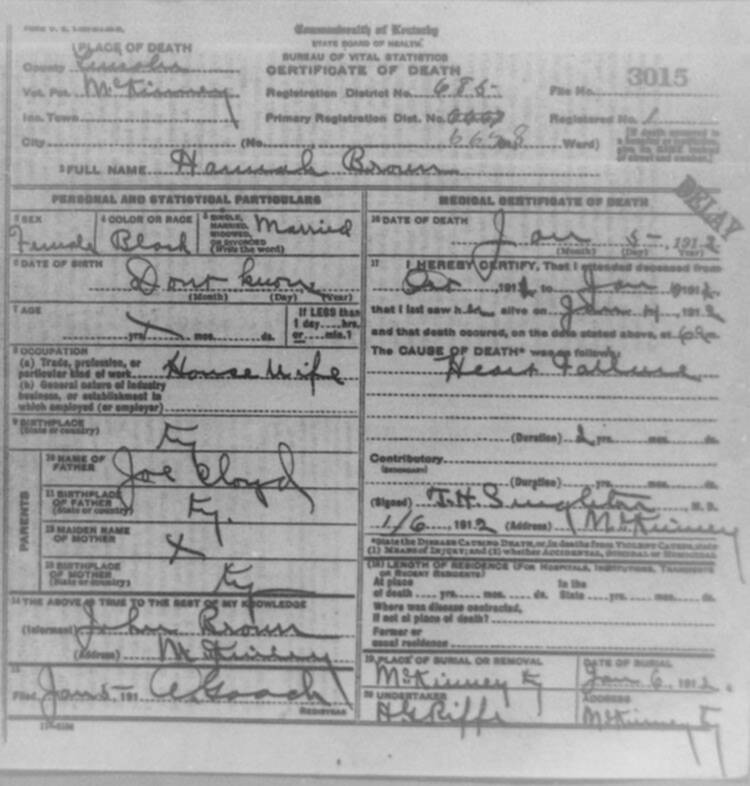 Commonwealth of Kentucky
STATE BOARD OF HEALTH
BUREAU OF VITAL STATISTICS
CERTIFICATE OF DEATH
PLACE OF DEATH
County Lincoln
Vot. Pct. McKinney
Inc. Town
City
Registration District No. 685
Primary Registration Dist. No. 6668
(No. Ward)
File No. 3015
Registered No. 1
2 FULL NAME Hannah Brown
DELAY
PERSONAL AND STATISTICAL PARTICULARS
3 SEX
Female
4 COLOR OR RACE
Black
5 SINGLE, MARRIED, WIDOWED, OR DIVORCED (Write the word)
Married
6 DATE OF BIRTH
Dont know
(Month) (Day) (Year)
7 AGE
X yrs. mos. ds.
If LESS than
1 day....hrs.
or....min.?
8 OCCUPATION
(a) Trade, profession, or
particular kind of work House Wife
(b) General nature of industry
business, or establishment in
which employed (or employer)
9 BIRTHPLACE
(State or country)
Ky
PARENTS
10 NAME OF
FATHER
Joe Cloyd
11 BIRTHPLACE
OF FATHER
(State or country)
Ky.
12 MAIDEN NAME
OF MOTHER
X
13 BIRTHPLACE
OF MOTHER
(State or country)
Ky
14 THE ABOVE IS TRUE TO THE BEST OF MY KNOWLEDGE
(Informant) John Brown
(Address) McKinney
15
Filed Jan 5 191
REGISTRAR
MEDICAL CERTIFICATE OF DEATH
16 DATE OF DEATH
Jan 5 1912
(Month) (Day) (Year)
17 I HEREBY CERTIFY, That I attended deceased from
191 to Jan 1912
that I last saw h alive on Jan 4 1912
and that death occured, on the date stated above, at
The CAUSE OF DEATH* was as follows:
Heart Failure
(Duration) 2 yrs. mos. ds.
Contributory
(SECONDARY)
(Duration) yrs. mos. ds.
(Signed) T. H. Singleton M. D.
1/6 1912 (Address) McKinney
*State the DISEASE CAUSING DEATH, or, in deaths from VIOLENT CAUSES, state
(1) MEANS OF INJURY; and (2) whether ACCIDENTAL, SUICIDAL or HOMICIDAL
(18) LENGTH OF RESIDENCE (FOR HOSPITALS, INSTITUTIONS, TRANSIENTS
OR RECENT RESIDENTS)
At place In the
of death yrs. mos. ds. State yrs. mos. ds.
Where was disease contracted,
if not at place of death?
Former or
usual residence
19 PLACE OF BURIAL OR REMOVAL
McKinney Ky
DATE OF BURIAL
Jan 6 1912.
20 UNDERTAKER
ADDRESS
McKinney Ky